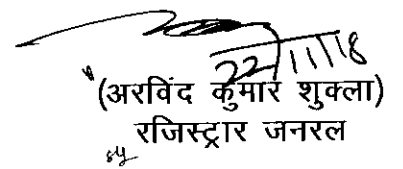 22/11/18
(अरविंद कुमार शुक्ला)
रजिस्ट्रार जनरल